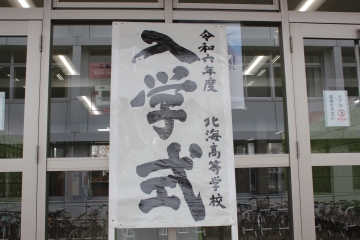 令和六年度
北海高等学校
入学式